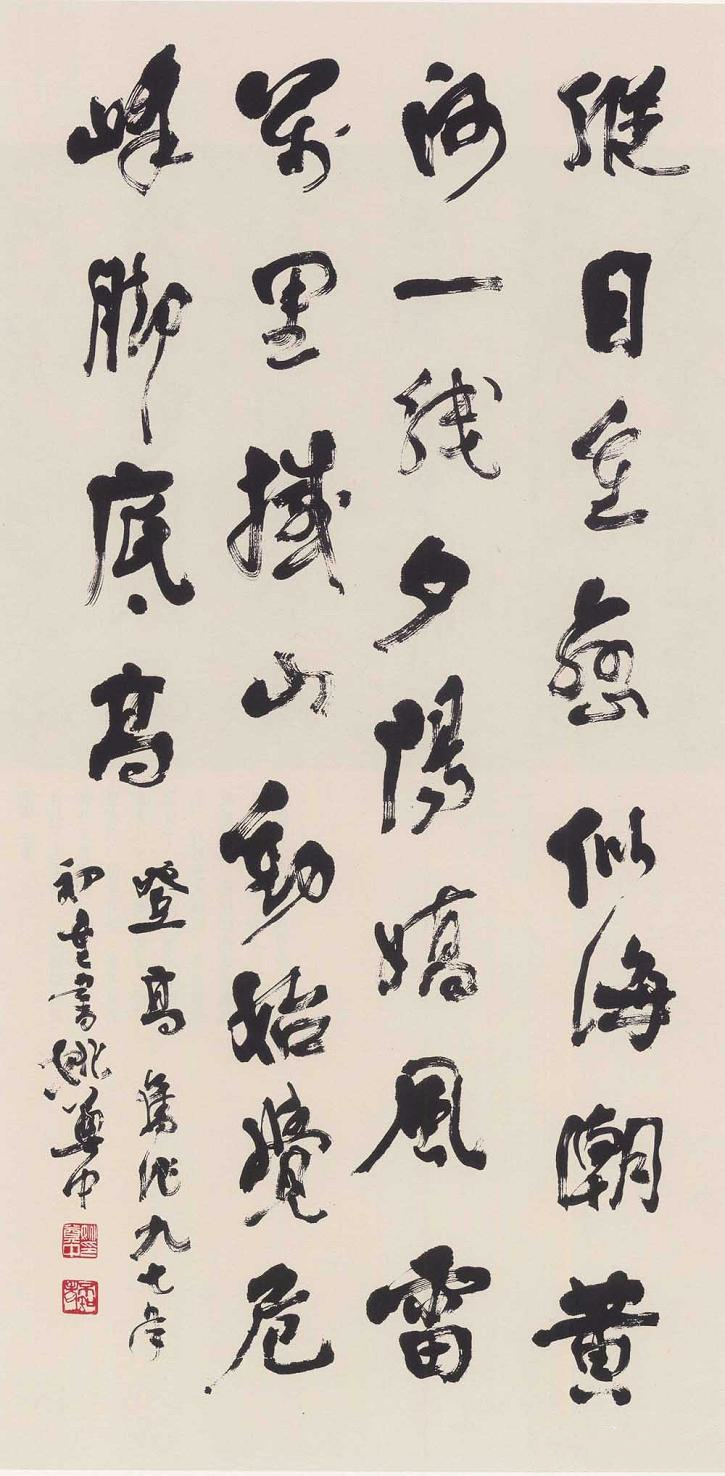 縱目重巒似海潮黃
河一綫夕陽嬌風雷
萬里撼山動始覺危
峰腳底高
登高舊作九七年
初夏書姚奠中